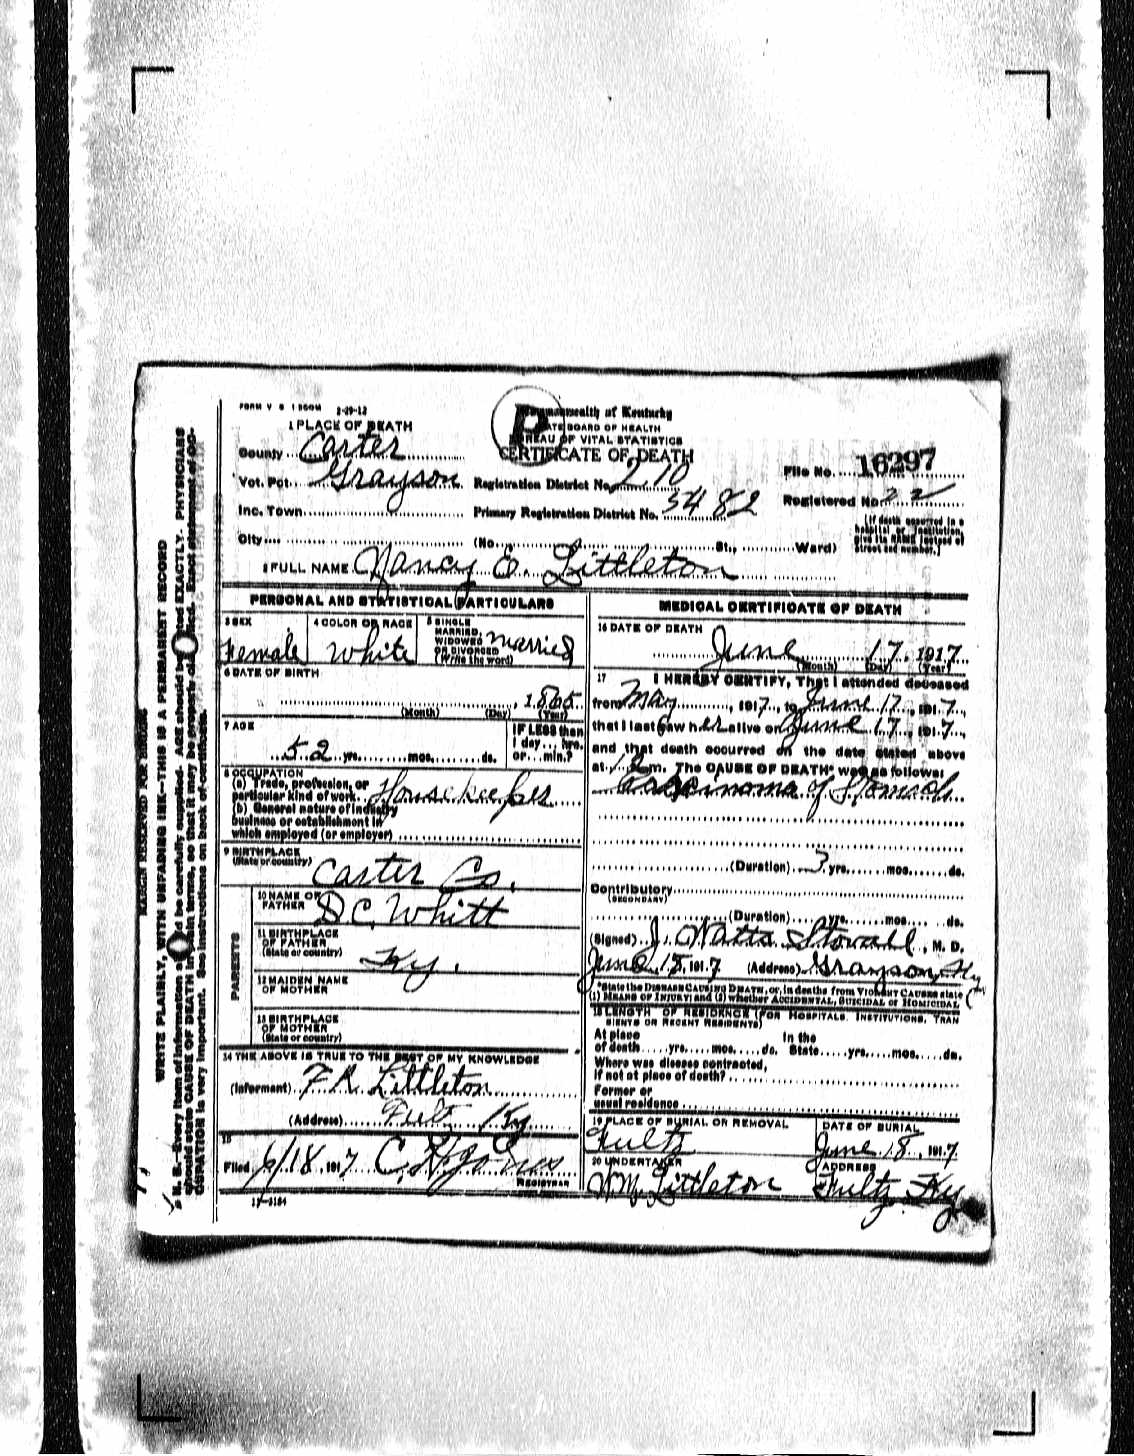 FORM V S 1 500M 2-29-12
Commonwealth of Kentucky
STATE BOARD OF HEALTH
BUREAU OF VITAL STATISTICS
CERTIFICATE OF DEATH
1 PLACE OF DEATH
County Carter
Vot. Pct. Grayson Registration District No. 210
File No. 16297
Inc. Town Primary Registration District No. 5482
Registered No. 22
City (No. St., Ward)
[If death occurred in a hospital or institution, give its NAME instead of street and number.]
2 FULL NAME Nancy E. Littleton
PERSONAL AND STATISTICAL PARTICULARS
3 SEX 4 COLOR OR RACE 5 SINGLE MARRIED, WIDOWED OR DIVORCED (Write the word)
Female White married
6 DATE OF BIRTH
, 1865
(Month) (Day) (Year)
7 AGE IF LESS than
1 day... hrs.
52 yrs. mos. ds. or... min.?
8 OCCUPATION
(a) Trade, profession, or
particular kind of work. Housekeeper
(b) General nature of industry
business or establishment in
which employed (or employer)
9 BIRTHPLACE
(State or country) Carter Co.
PARENTS
10 NAME OF
FATHER D.C. Whitt
11 BIRTHPLACE
OF FATHER
(State or country) Ky.
12 MAIDEN NAME
OF MOTHER
13 BIRTHPLACE
OF MOTHER
(State or country)
14 THE ABOVE IS TRUE TO THE BEST OF MY KNOWLEDGE
(Informant) F R Littleton
(Address) Fultz Ky
15
Filed 6/18, 1917 C.
REGISTRAR
11-3184
MEDICAL CERTIFICATE OF DEATH
16 DATE OF DEATH
June 17, 1917
(Month) (Day) (Year)
17 I HEREBY CERTIFY, That I attended deceased
from May, 1917, to June 17, 1917,
that I last saw her alive on June 17, 1917,
and that death occurred on the date stated above
at 12 m. The CAUSE OF DEATH* was as follows:
Carcinoma of Stomach
(Duration) 3 yrs. mos. ds.
Contributory
(SECONDARY)
(Duration) yrs. mos. ds.
(Signed) J. Watts Stovall, M. D.
June 18, 1917 (Address) Grayson, Ky
*State the DISEASE CAUSING DEATH, or, in deaths from VIOLENT CAUSES state
(1) MEANS OF INJURY; and (2) whether ACCIDENTAL, SUICIDAL or HOMICIDAL
18 LENGTH OF RESIDENCE (FOR HOSPITALS, INSTITUTIONS, TRAN
SIENTS OR RECENT RESIDENTS)
At place In the
of death yrs. mos. ds. State yrs. mos. ds.
Where was disease contracted,
if not at place of death?
Former or
usual residence
19 PLACE OF BURIAL OR REMOVAL DATE OF BURIAL
Fultz June 18, 1917
20 UNDERTAKER ADDRESS
Wm Littleton Fultz Ky
MARGIN RESERVED FOR BINDING
WRITE PLAINLY, WITH UNFADING INK—THIS IS A PERMANENT RECORD
N. B.—Every item of information should be carefully supplied. AGE should be stated EXACTLY. PHYSICIANS
should state CAUSE OF DEATH in plain terms, so that it may be properly classified. Exact statement of OC-
CUPATION is very important. See instructions on back of certificate.